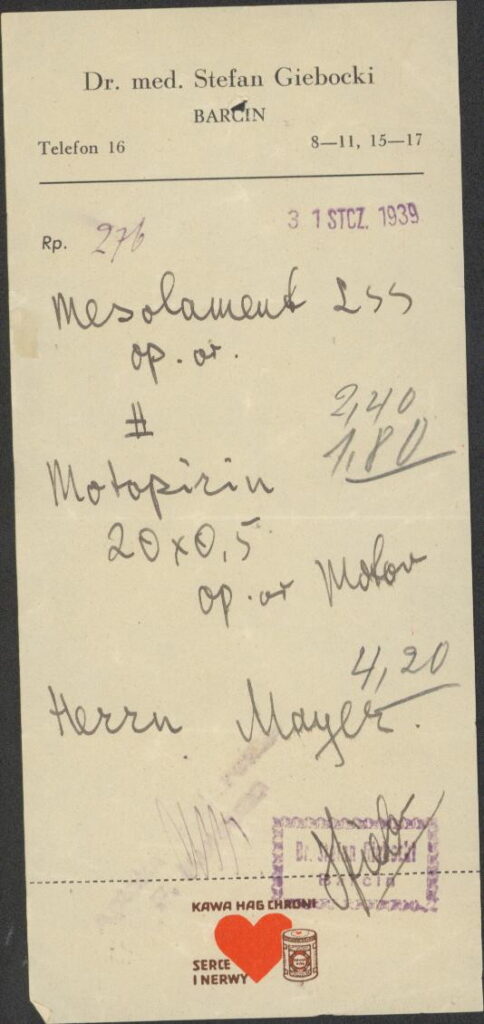 Dr. med. Stefan Giebocki
BARCIN
Telefon 16 8—11, 15—17
31 STCZ. 1939
Rp. 276
Mesolament
op. or.
#
2,40
1,80
Motopirin
20 x 0,5
op. or Motor
4,20
Herrn Mayer.
Dr. Stefan Giebocki
Barcin
KAWA HAG CHRONI
SERCE
I NERWY